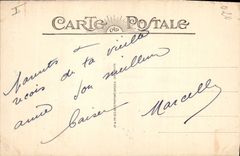 CARTE POSTALE
reçois de ta vieille
amie son meilleur
baiser Marcelle